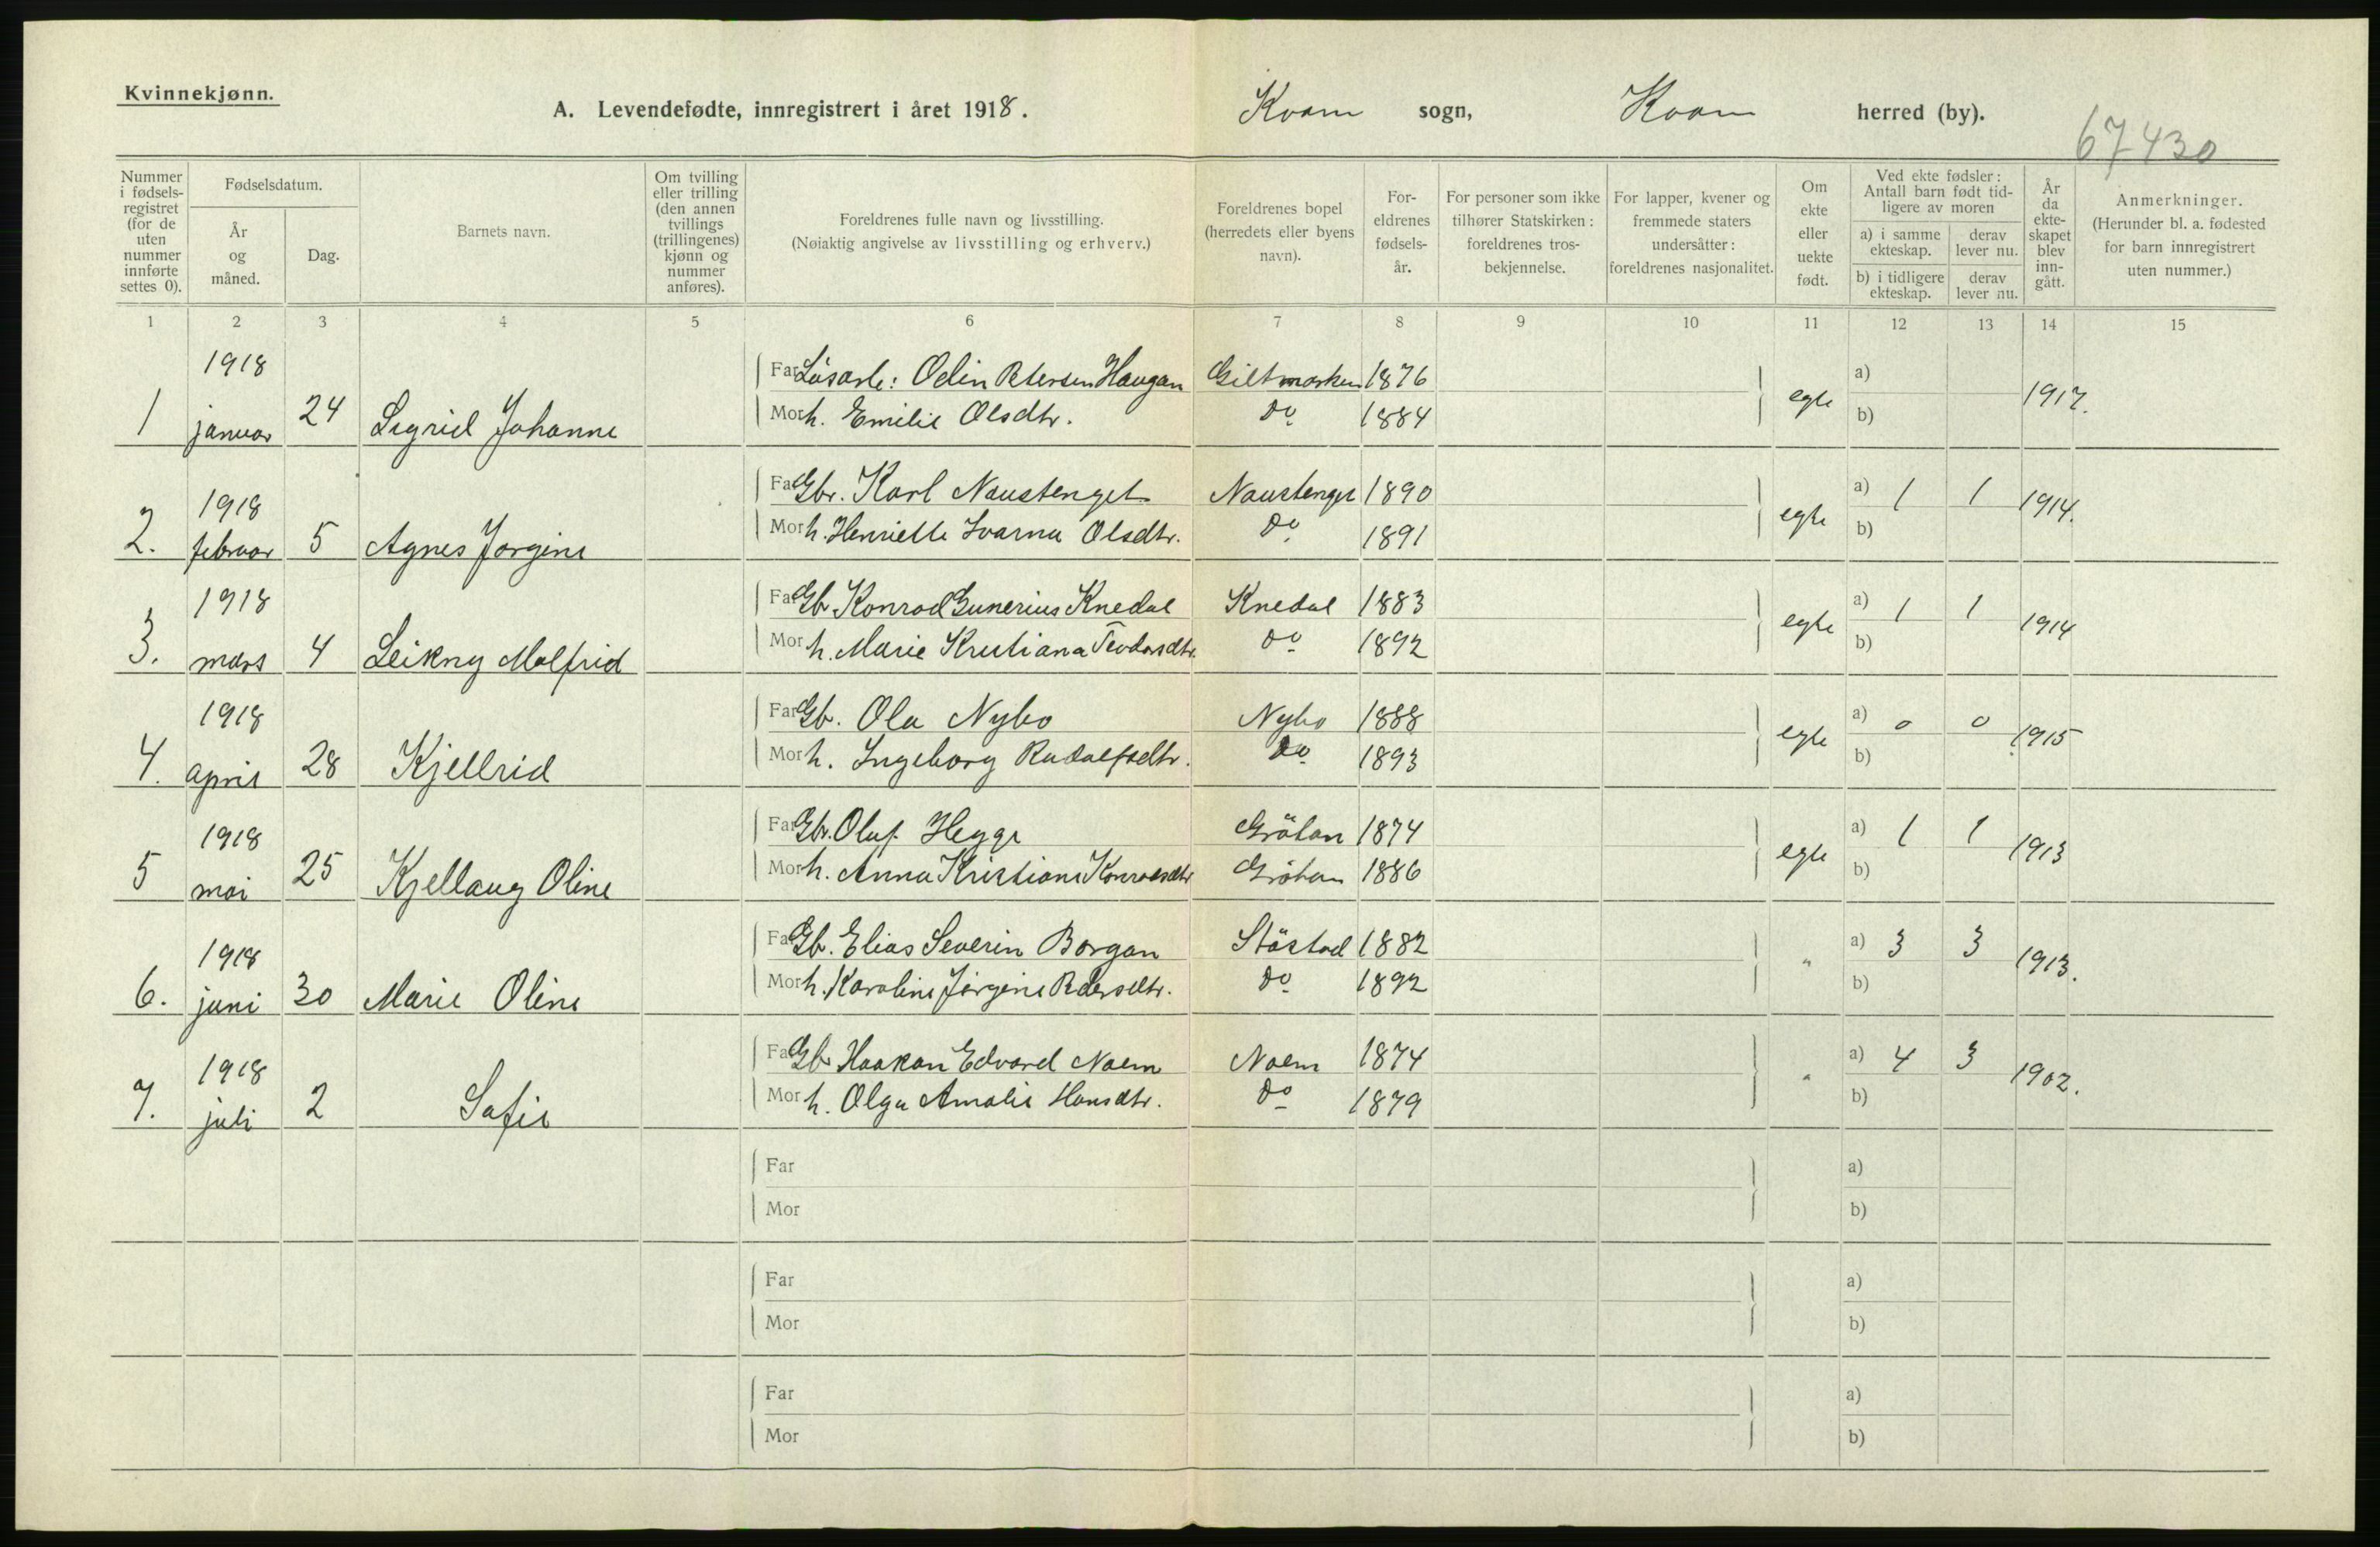 Kvinnekjønn.
A. Levendefødte, innregistrert i året 1918. Kvam sogn, Kvam herred (by).
67430
Nummer i fødsels-registret (for de uten nummer innførte settes 0).
Fødselsdatum.
År og måned.
Dag.
Barnets navn.
Om tvilling eller trilling (den annen tvillings (trillingenes) kjønn og nummer anføres).
Foreldrenes fulle navn og livsstilling.
(Nøiaktig angivelse av livsstilling og erhverv.)
Foreldrenes bopel (herredets eller byens navn).
For-eldrenes fødsels-år.
For personer som ikke tilhører Statskirken: foreldrenes tros-bekjennelse.
For lapper, kvener og fremmede staters undersåtter: foreldrenes nasjonalitet.
Om ekte eller uekte født.
Ved ekte fødsler: Antall barn født tid-ligere av moren
a) i samme ekteskap.
derav lever nu.
b) i tidligere ekteskap.
derav lever nu.
År da ekte-skapet blev inn-gått.
Anmerkninger.
(Herunder bl. a. fødested for barn innregistrert uten nummer.)
1 2 3 4 5 6 7 8 9 10 11 12 13 14 15
1918
Far Løsarb: Odin Petersen Haugan Giltmarken 1876 a)
1 januar 24 Sigrid Johanne Mor h. Emilie Olsdtr. do 1884 egte b) 1917.
1918
Far Gbr. Karl Naustenget Naustenget 1890 a) 1 1
2. februar 5 Agnes Jorgine Mor h. Henriette Ivarna Olsdtr. do 1891 egte b) 1914.
1918
Far Gb Konrad Gunerius Knedal Knedal 1883 a) 1 1
3. mars 4 Leikny Malfrid Mor h. Marie Kristiana Teodorsdtr. do 1892 egte b) 1914
1918
Far Gb. Ola Nybo Nybo 1888 a) 0 0
4. april 28 Kjellrid Mor h. Ingeborg Rudolfsdtr. do 1893 egte b) 1915
1918
Far Gb. Oluf Hegge Gråtan 1874 a) 1 1
5 mai 25 Kjellaug Oline Mor h. Anna Kristiane Konradsdtr Gråtan 1886 egte b) 1913
1918
Far Gb. Elias Severin Borgan Støstad 1882 a) 3 3
6. juni 30 Marie Oline Mor h. Karoline Jørgine Pedersdtr. do 1892 " b) 1913.
1918
Far Gb Haakon Edvard Naem Naem 1874 a) 4 3
7. juli 2 Safie Mor h. Olga Amalie Hansdtr. do 1879 " b) 1902.
Far a)
Mor b)
Far a)
Mor b)
Far a)
Mor b)